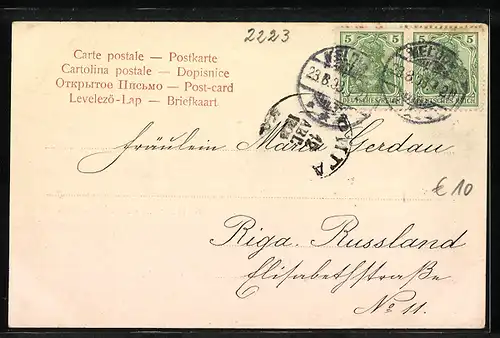 2223
Carte postale — Postkarte
Cartolina postale — Dopisnice
Открытое Письмо — Post-card
Levelező-Lap — Briefkaart
5 5 5 5
DEUTSCHES REICH
Fräulein Maria Gerdau
€10
Riga. Russland
Elisabethstraße
No 11.